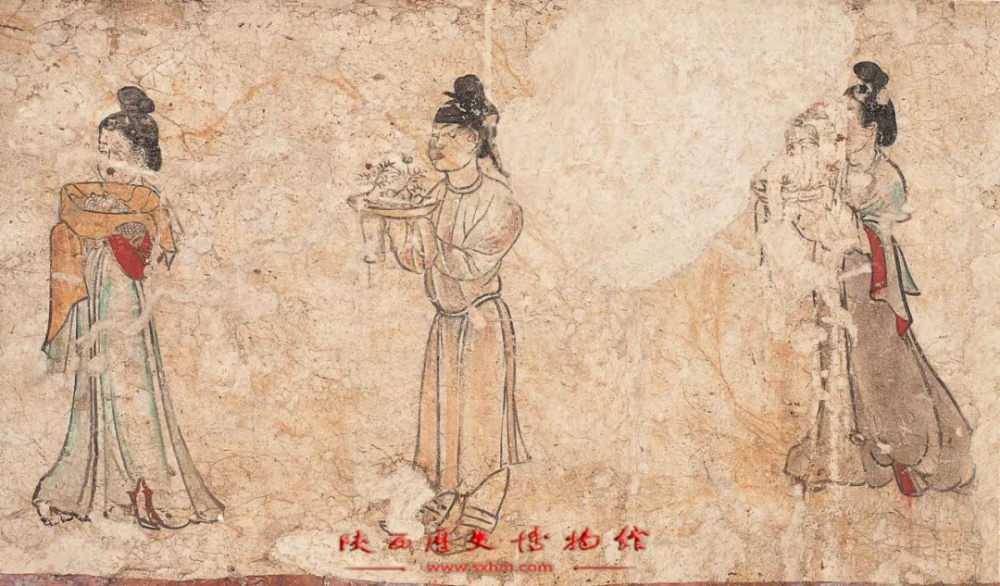 陕西历史博物馆
www.sxhm.com